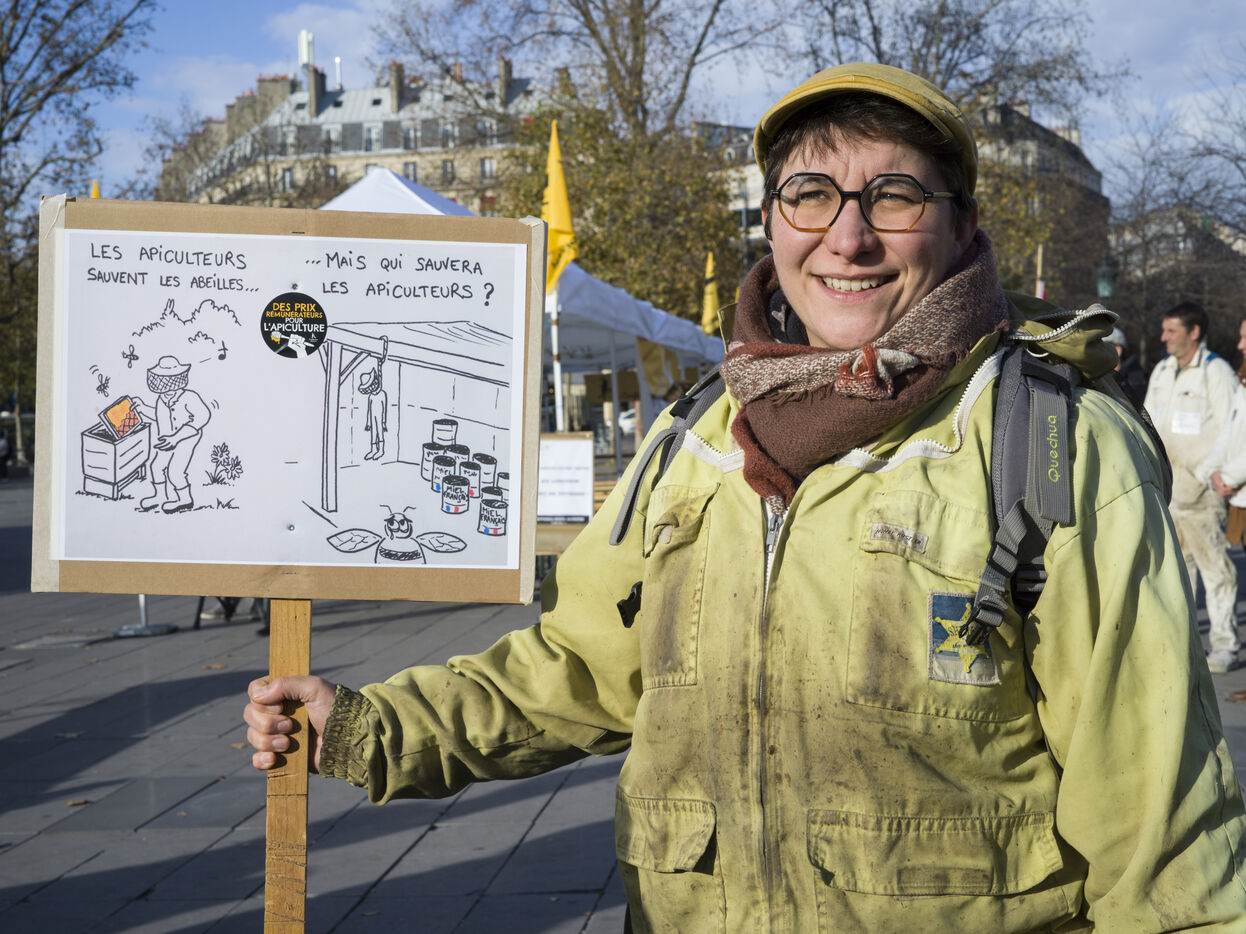 LES APICULTEURS
SAUVENT LES ABEILLES...
...MAIS QUI SAUVERA
LES APICULTEURS ?
DES PRIX
RÉMUNÉRATEURS
POUR
L'APICULTURE
MIEL
FRANÇAIS
MIEL
FRANÇAIS
Quechua